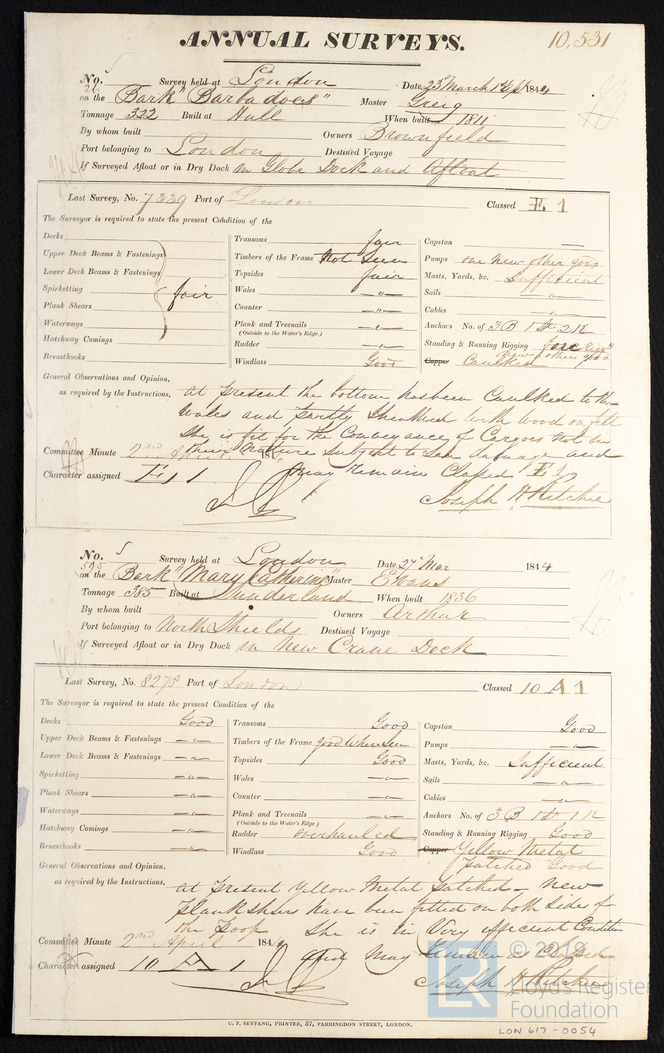 ANNUAL SURVEYS. 10,531
No. 5 Survey held at London Date 23d March 1st Apl 1844
26
on the Bark "Barbadoes" Master Greig
Tonnage 322 Built at Hull When built 1811
By whom built Owners Brownfield
Port belonging to London Destined Voyage
If Surveyed Afloat or in Dry Dock in Globe Dock and Afloat
Last Survey, No. 7339 Port of London Classed E 1
The Surveyor is required to state the present Condition of the
Decks
Upper Deck Beams & Fastenings
Lower Deck Beams & Fastenings
Spirketting fair
Plank Shears
Waterways
Hatchway Comings
Breasthooks
Transoms fair
Timbers of the Frame Not Seen
Topsides fair
Wales "
Counter "
Plank and Treenails "
(Outside to the Water's Edge.)
Rudder "
Windlass Good
Capstan —
Pumps one New other good
Masts, Yards, &c. Sufficient
Sails "
Cables "
Anchors No. of 3B 1St 2K
Standing & Running Rigging
Copper Caulked
General Observations and Opinion, at present the bottom has been Caulked to the
as required by the Instructions, Wales and partly Sheathed with wood on felt
She is fit for the Conveyance of Cargoes not in
Committee Minute 2nd April 184 their Nature subject to Sea damage and
Character assigned E 1 may remain Classed E 1
Joseph H Ritchie
No. 5 Survey held at London Date 27th Mar 1844
595
on the Bark "Mary Catherine" Master Evans
Tonnage 385 Built at Sunderland When built 1836
By whom built Owners Arthur
Port belonging to North Shields Destined Voyage
If Surveyed Afloat or in Dry Dock in New Crane Dock
Last Survey, No. 8278 Port of London Classed 10 A 1
The Surveyor is required to state the present Condition of the
Decks Good
Upper Deck Beams & Fastenings "
Lower Deck Beams & Fastenings "
Spirketting "
Plank Shears "
Waterways "
Hatchway Comings "
Breasthooks "
Transoms Good
Timbers of the Frame Good Where Seen
Topsides Good
Wales "
Counter "
Plank and Treenails "
(Outside to the Water's Edge.)
Rudder overhauled
Windlass Good
Capstan Good
Pumps "
Masts, Yards, &c. Sufficient
Sails "
Cables "
Anchors No. of 3B 1St 1K
Standing & Running Rigging Good
Copper Yellow Metal
patched Good
General Observations and Opinion,
as required by the Instructions, at present Yellow Metal patched – New
Plank shears have been fitted on both sides of
the Poop She is in Very efficient Condition
Committee Minute 2nd April 184 and May Continue as Classed
Character assigned 10 A 1 Joseph H Ritchie
C. F. SEYFANG, PRINTER, 57, FARRINGDON STREET, LONDON.
LR © 2019
Lloyd's Register
Foundation
LON 617-0054